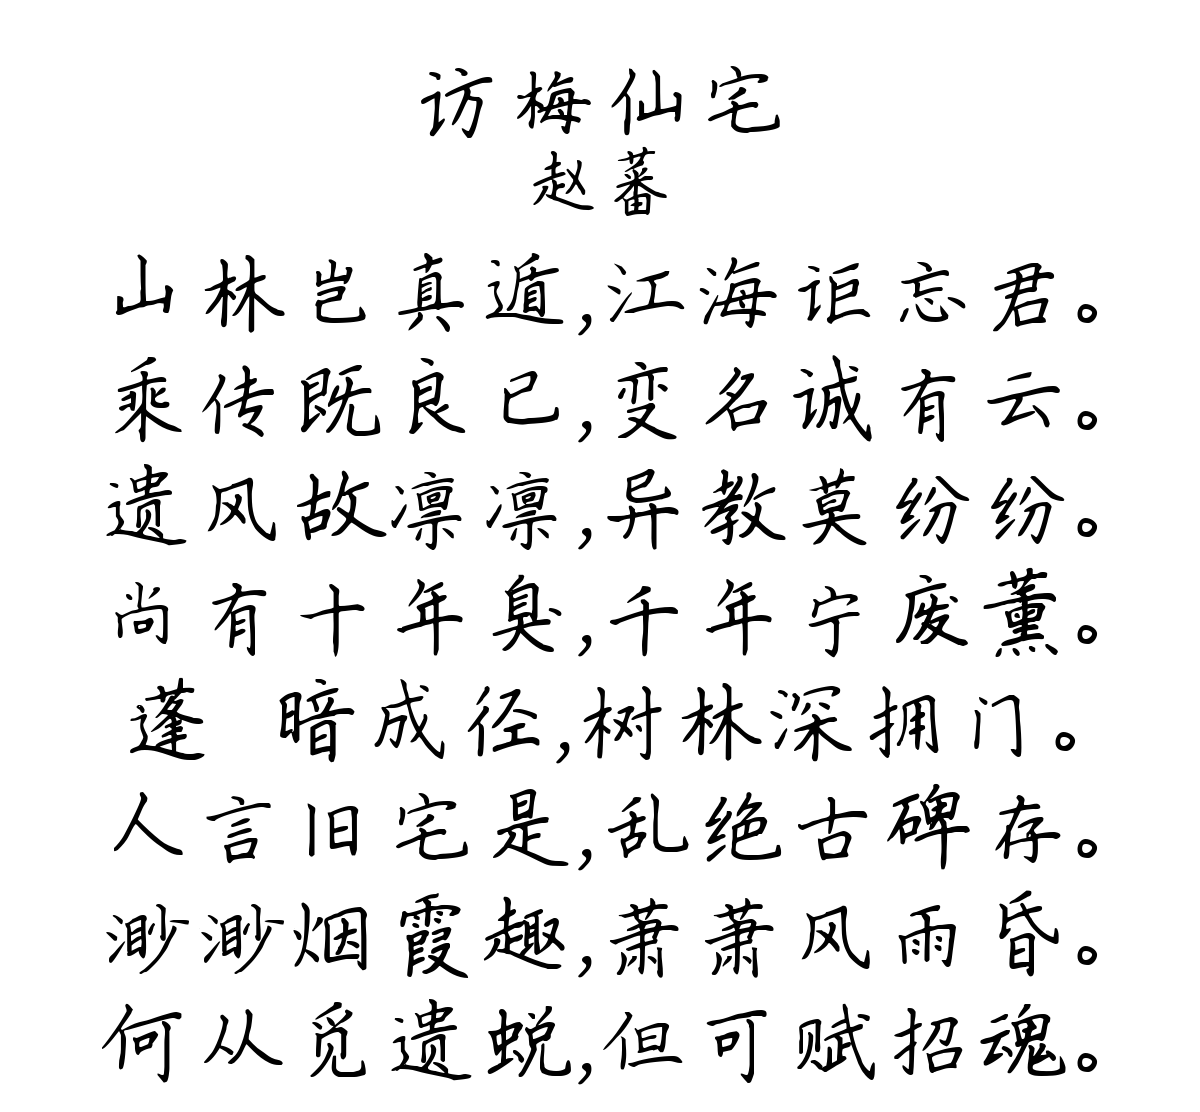 访梅仙宅
赵蕃
山林岂真遁,江海讵忘君。
乘传既良已,变名诚有云。
遗风故凛凛,异教莫纷纷。
尚有十年臭,千年宁废薰。
蓬 暗成径,树林深拥门。
人言旧宅是,乱绝古碑存。
渺渺烟霞趣,萧萧风雨昏。
何从觅遗蜕,但可赋招魂。